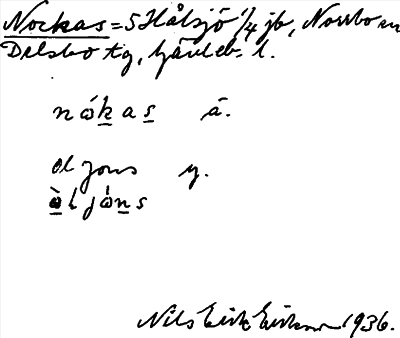 Nockas = S Hålsjö 1/4 jb, Norrbo sn
Delsbo tg, Gävleb. l.
nókas ä.
ol jons y.
òl jóns
Nils Erik Eriksson 1936.